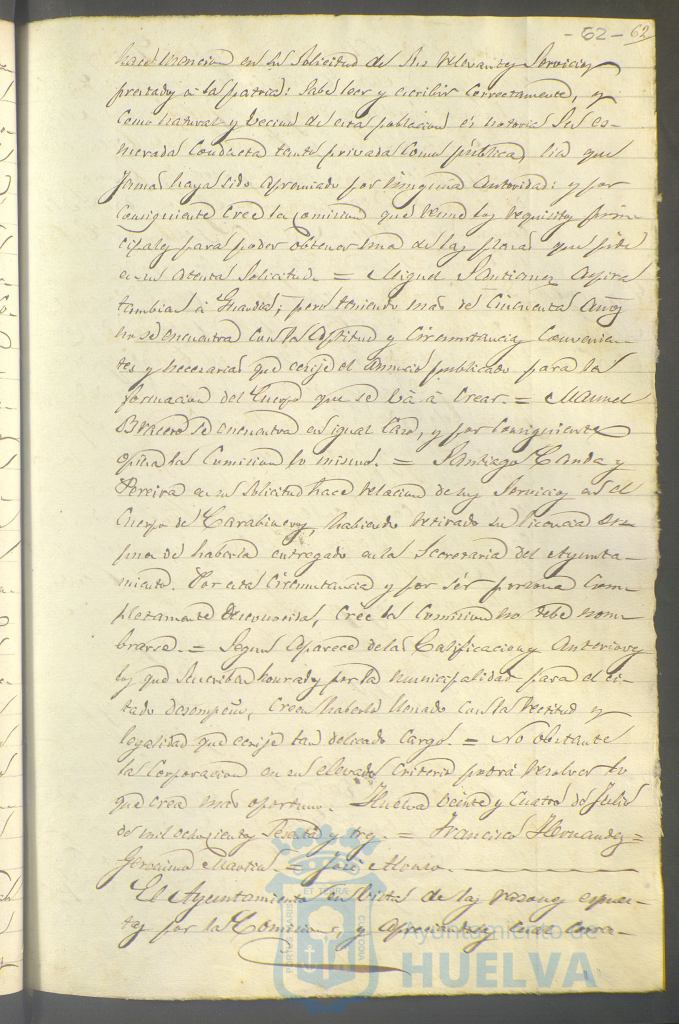 - 62 - 62
hace mencion en su Solicitud de sus relevantes Servicios
prestados a la patria: Sabe leer y escribir correctamente, y
como natural y vecino de esta poblacion es notoria su es-
merada Conducta tanto privada como pública, sin que
jamas haya sido apremiado por ninguna autoridad: y por
consiguiente cree la comision que reune los requisitos prin-
cipales para poder obtener una de las plazas que pide
en su atenta Solicitud. = Miguel Santianez Aspira
tambien á Guardia; pero teniendo mas de Cincuenta Años
no se encuentra con la Aptitud y Circunstancias Convenien-
tes y necesarias que ecsije el anuncio publicado para la
formacion del Cuerpo que se vá á Crear. = Manuel
Bracero se encuentra en igual Caso, y por Consiguiente
opina la Comision lo mismo. = Santiago Canda y
Pereira en su Solicitud hace relacion de sus Servicios en el
Cuerpo de Carabineros, habiendo retirado su licencia des-
pues de haberla entregado en la Secretaria del Ayunta-
miento. Por esta Circunstancia y por ser persona com-
pletamente desconocida, cree la Comision no debe nom-
brarse. = Segun Aparece de las Calificaciones Anteriores
los que Suscriben honrados por la municipalidad para el ci-
tado desempeño, Creen haberlo llenado con la rectitud y
legalidad que ecsije tan delicado Cargo. = No obstante
la Corporacion en su elevado Criterio podrá resolver lo
que crea mas oportuno. Huelva Veinte y Cuatro de Julio
de mil ochocientos Sesenta y tres. = Francisco Hernandez =
Geronimo Martin = José Alonso.
El Ayuntamiento en vista de las razones espues-
tas por la Comision, y apreciandolas cual corre-
Ayuntamiento de
HUELVA